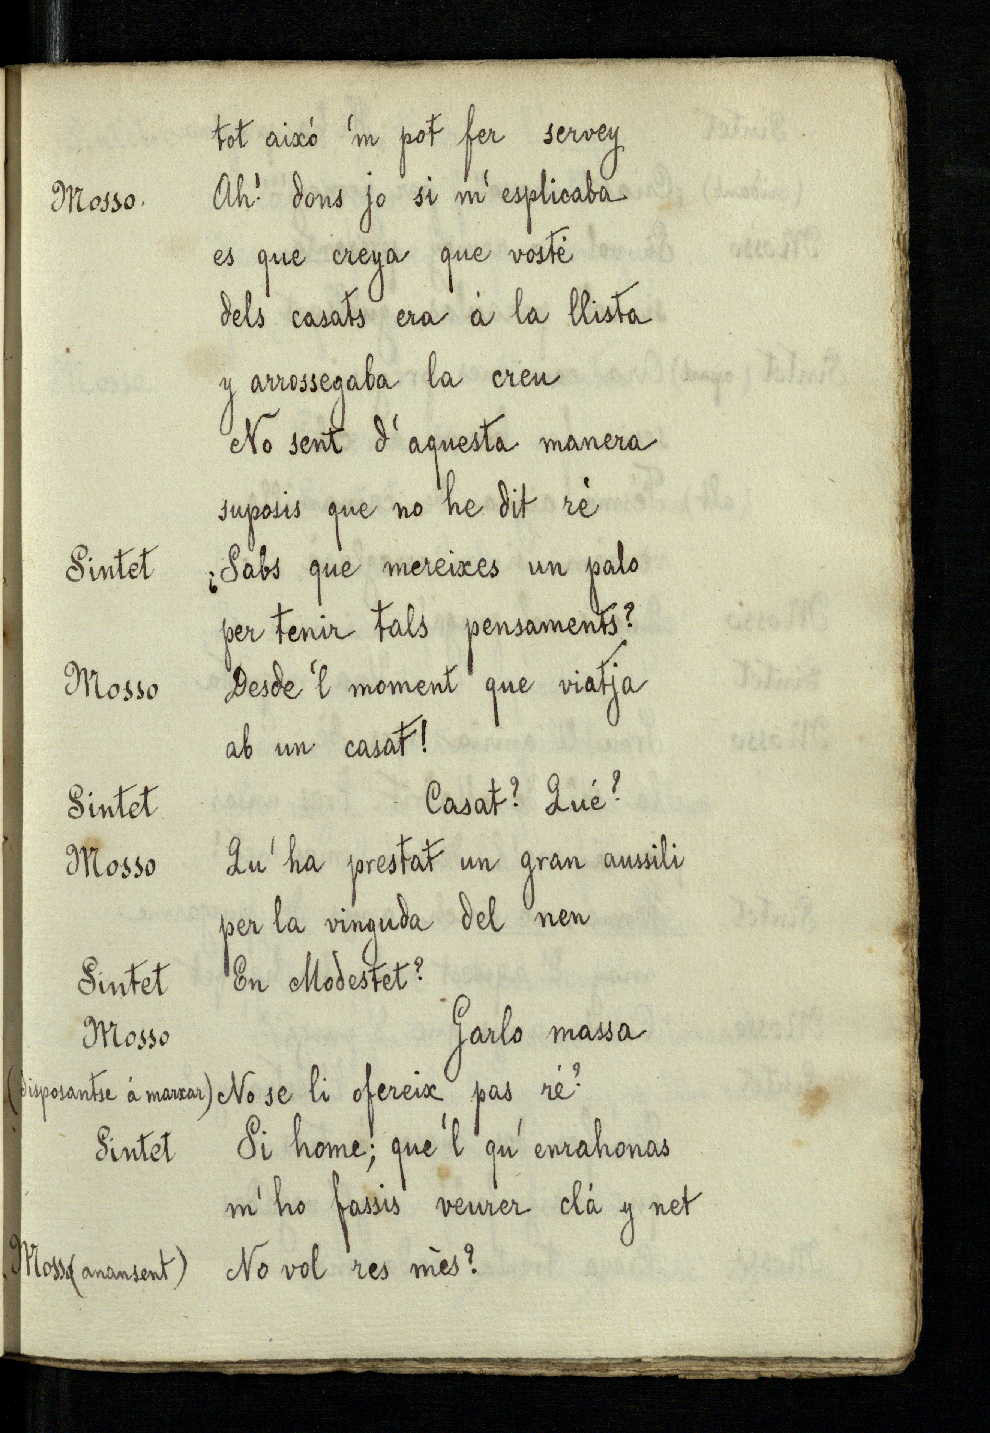 tot aixó 'm pot fer servey
Mosso. Ah! dons jo si m' esplicaba
es que creya que vosté
dels casats era á la llista
y arrossegaba la creu
No sent d' aquesta manera
suposis que no he dit ré
Sintet ¿Sabs que mereixes un palo
per tenir tals pensaments?
Mosso Desde 'l moment que viatja
ab un casat!
Sintet Casat? Qué?
Mosso Qu' ha prestat un gran aussili
per la vinguda del nen
Sintet En Modestet?
Mosso Garlo massa
(disposantse á marxar) No se li ofereix pas ré?
Sintet Si home; que 'l qu' enrahonas
m' ho fassis veurer clá y net
Mosso (anansent) No vol res mès?